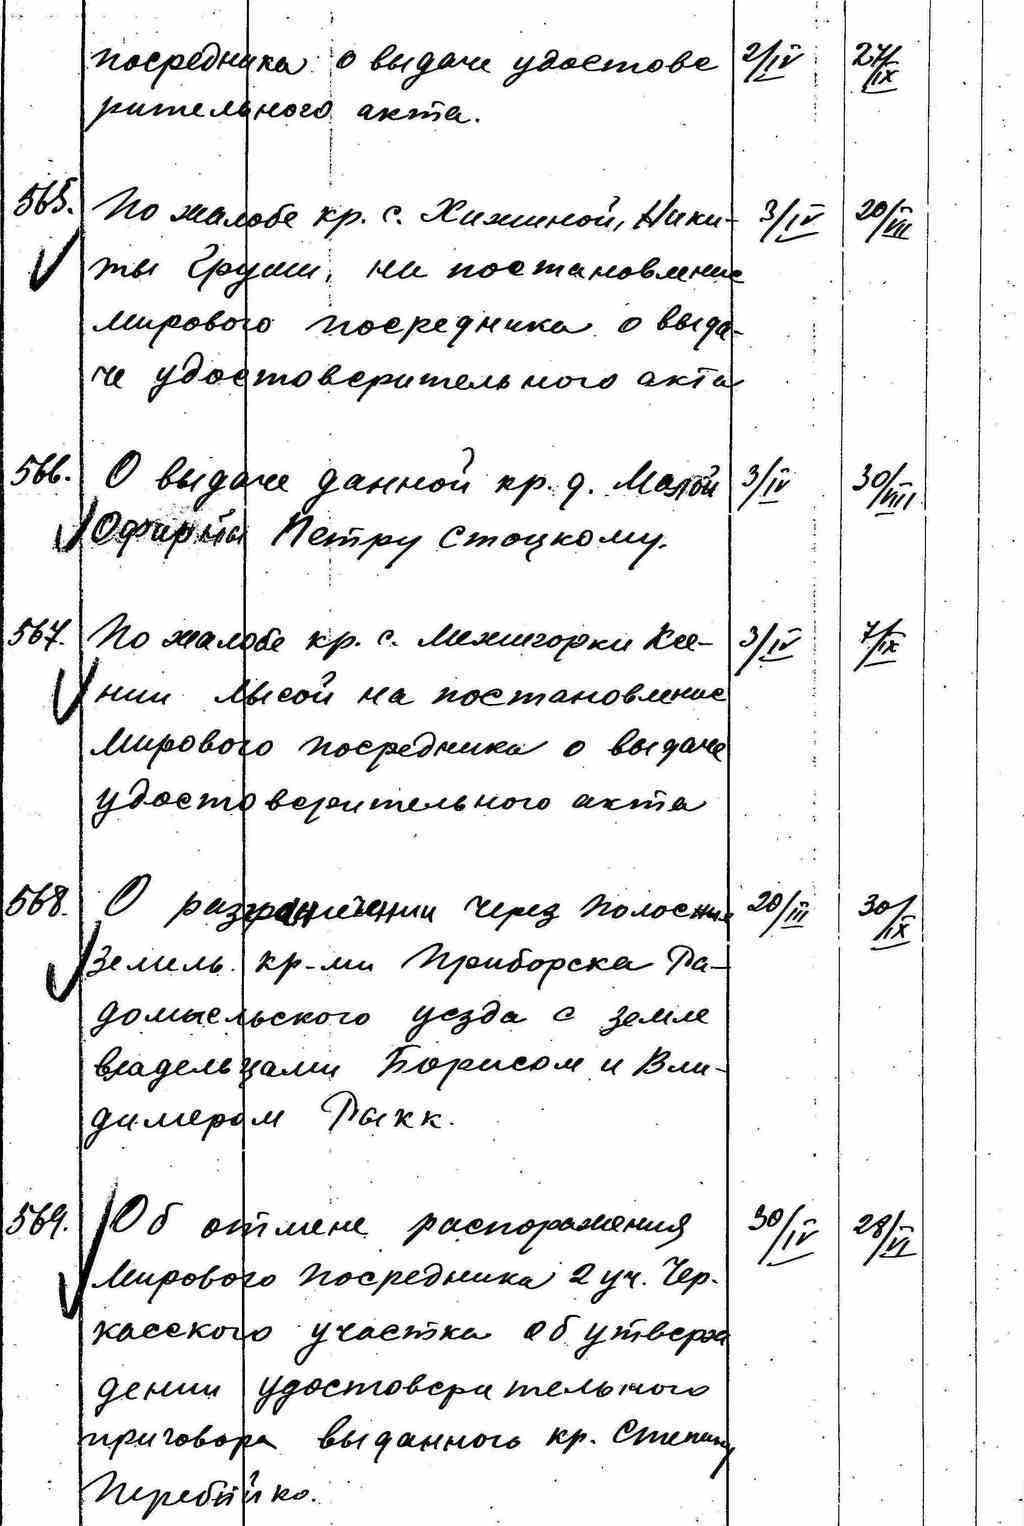 посредника о выдаче удостове 2/IV 27/IX
рительного акта.
565. По жалобе кр. с. Хижиной, Ники- 3/IV 20/VIII
ты Груши, на постановление
мирового посредника о выда-
че удостоверительного акта
566. О выдаче данной кр. д. Малой 3/IV 30/VIII
Офирны Петру Стоцкому.
567. По жалобе кр. с. Межигорки Ксе- 3/IV 7/IX
нии Лысой на постановление
Мирового посредника о выдаче
удостоверительного акта
568. О разграничении через полосных 20/III 30/IX
Земель кр-ми Приборска Ра-
домысльского уезда с земле
владельцами Борисом и Вла-
димером Рыкк.
569. Об отмене распоряжения 30/IV 28/VI
Мирового посредника 2 уч. Чер-
касского участка об утверж
дении удостоверительного
приговора выданного кр. Степану
Перебийко.